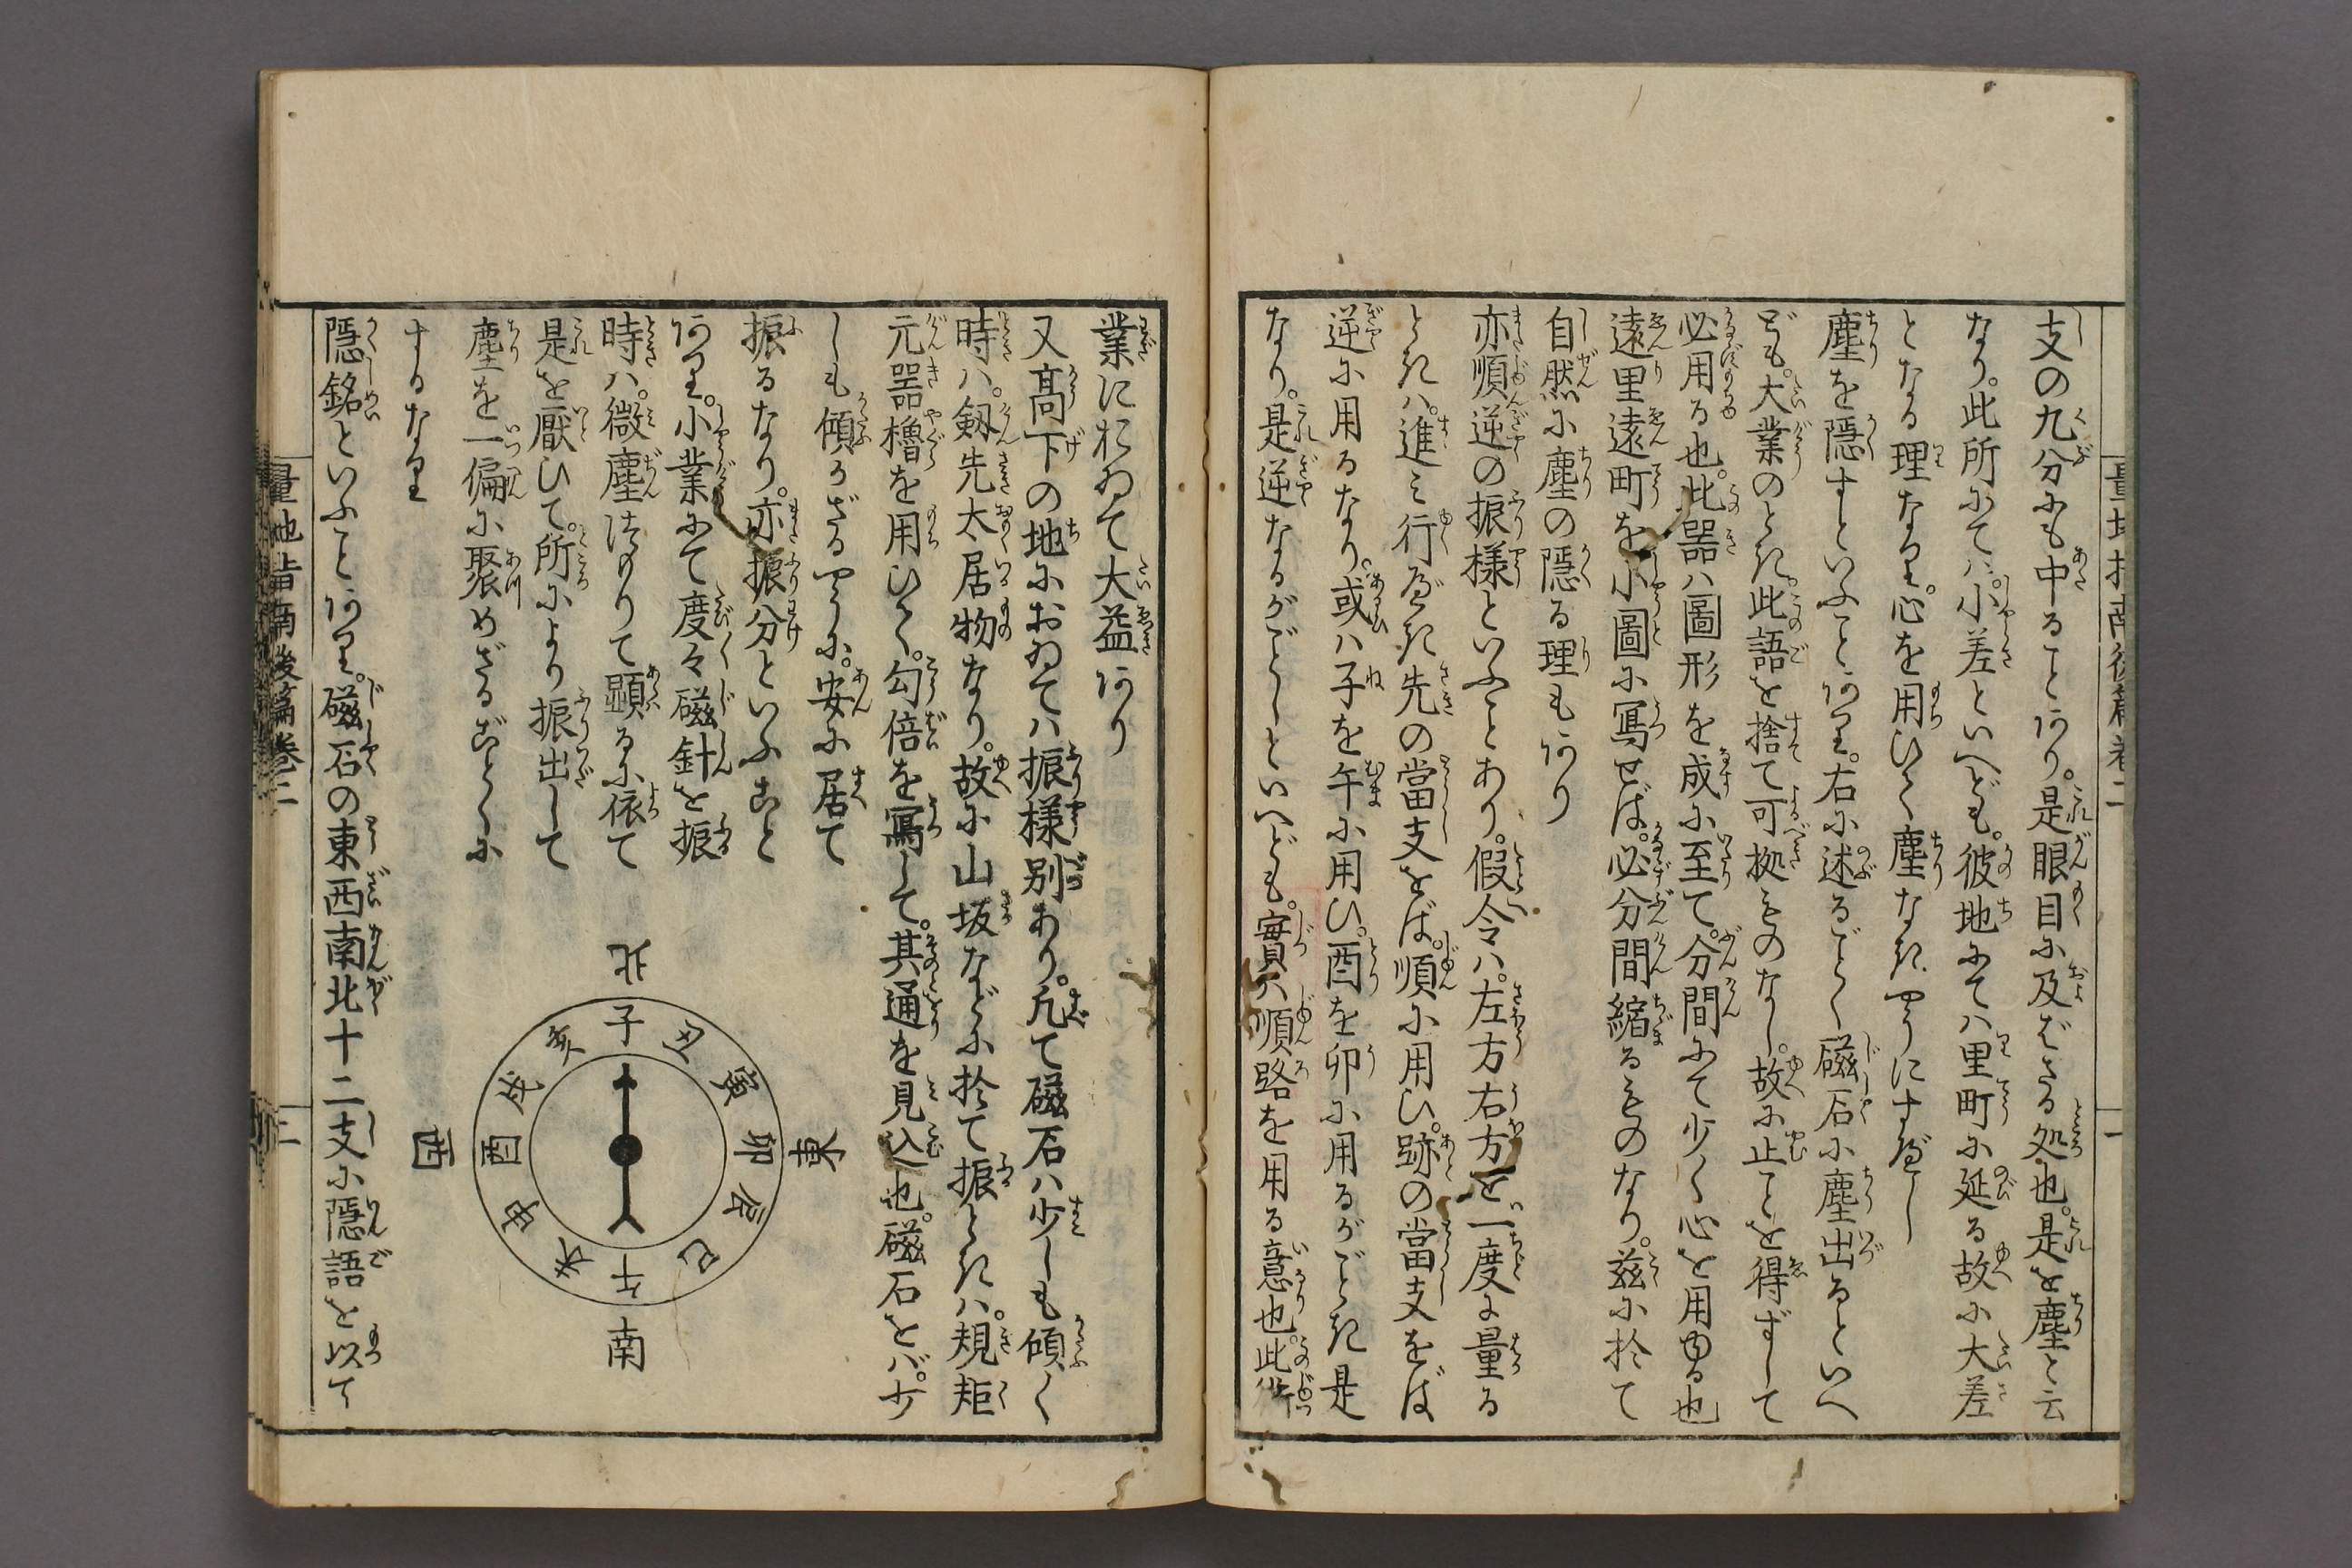 支の九分にも中ることあり。是眼目に及ばざる処也。是を塵と云
なり。此所にてハ。小差といへども。彼地にてハ里町に延る故に大差
となる理なり。心を用ひて塵なきやうにすべし
塵を隠すといふことあり。右に述るごとく磁石に塵出るといへ
ども。大業のとき。此語を捨て可拠ものなし。故に止ことを得ずして
必用る也。此器ハ圖形を成に至て。分間にて少く心を用ゆる也
遠里遠町を小圖に寫せば。必分間縮るものなり。茲に於て
自然に塵の隠る理もあり
亦順逆の振様といふことあり。假令ハ。左方右方を一度に量る
ときハ。進ミ行べき先の當支をば。順に用ひ。跡の當支をば
逆に用るなり。或ハ子を午に用ひ。酉を卯に用るがごとき是
なり。是逆なるがごとしといへども。實ハ順路を用る意也。此術
量地指南後篇巻二
一
業におゐて大益あり
又髙下の地におゐてハ振様別あり。凢て磁石ハ少しも傾く
時ハ。劔先太居物なり。故に山坂などに於て振ときハ。規矩
元器櫓を用ひて。勾倍を寫して。其通を見込也。磁石をバ。少
しも傾かざるやうに。安に居て
振るなり。亦振分といふこと
あり。小業にて度々磁針を振
時ハ。微塵つもりて顕るに依て
是を厭ひて。所により振出して
塵を一偏に聚めざるごとくに
するなり
北
子
丑
寅
卯
辰
巳
午
未
申
酉
戌
亥
東
西
南
隠銘といふことあり。磁石の東西南北十二支に隠語を以て
量地指南後篇巻二
二